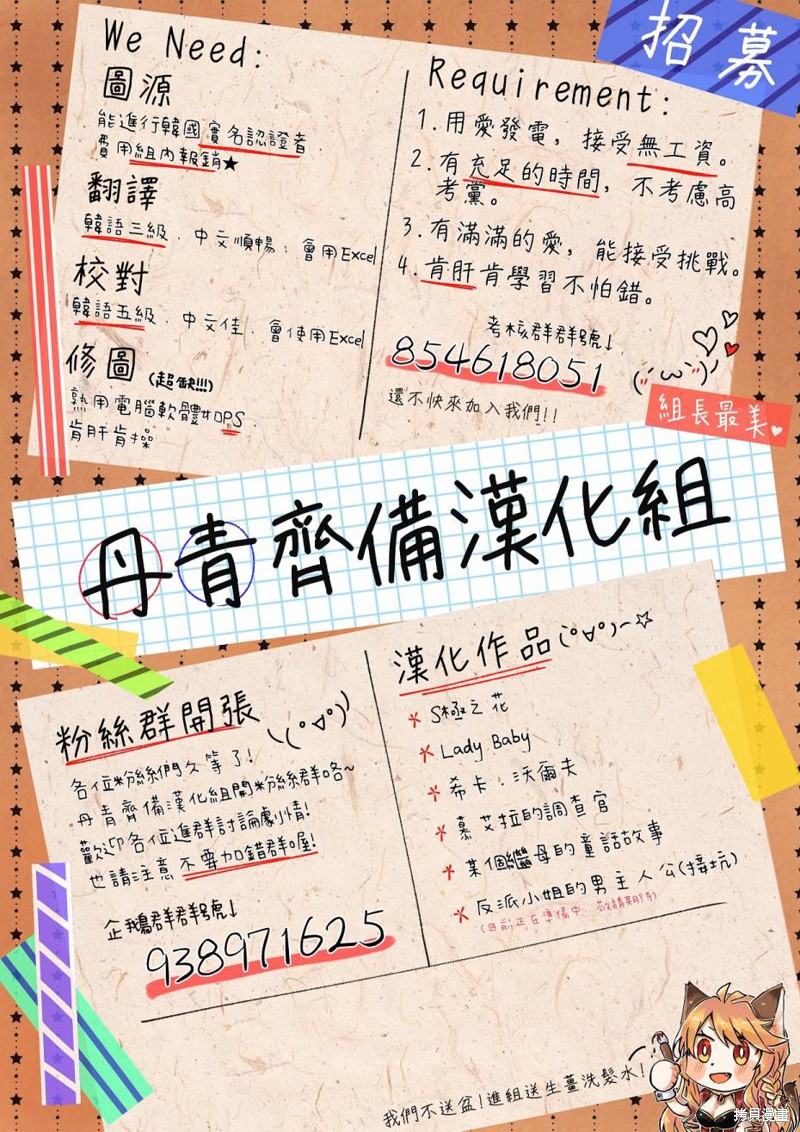 招募
We Need:
圖源
能進行韓國實名認證者
費用組內報銷★
翻譯
韓語三級、中文順暢；會用Excel
校對
韓語五級、中文佳、會使用Excel
修圖(超缺!!!)
熟用電腦軟體如PS、
肯肝肯操
Requirement:
1.用愛發電，接受無工資。
2.有充足的時間，不考慮高
考黨。
3.有滿滿的愛，能接受挑戰。
4.肯肝肯學習不怕錯。
考核群群號↓
854618051
還不快來加入我們!!
組長最美
丹青齊備漢化組
粉絲群開張
各位粉絲們久等了!
丹青齊備漢化組開粉絲群咯~
歡迎各位進群討論劇情!
也請注意不要加錯群喔!
企鵝群群號↓
938971625
漢化作品
S極之花
Lady Baby
希卡·沃爾夫
慕艾拉的調查官
某個繼母的童話故事
反派小姐的男主人公(接坑)
(目前正在準備中、敬請期待)
我們不送盆!進組送生薑洗髮水!
拷貝漫畫